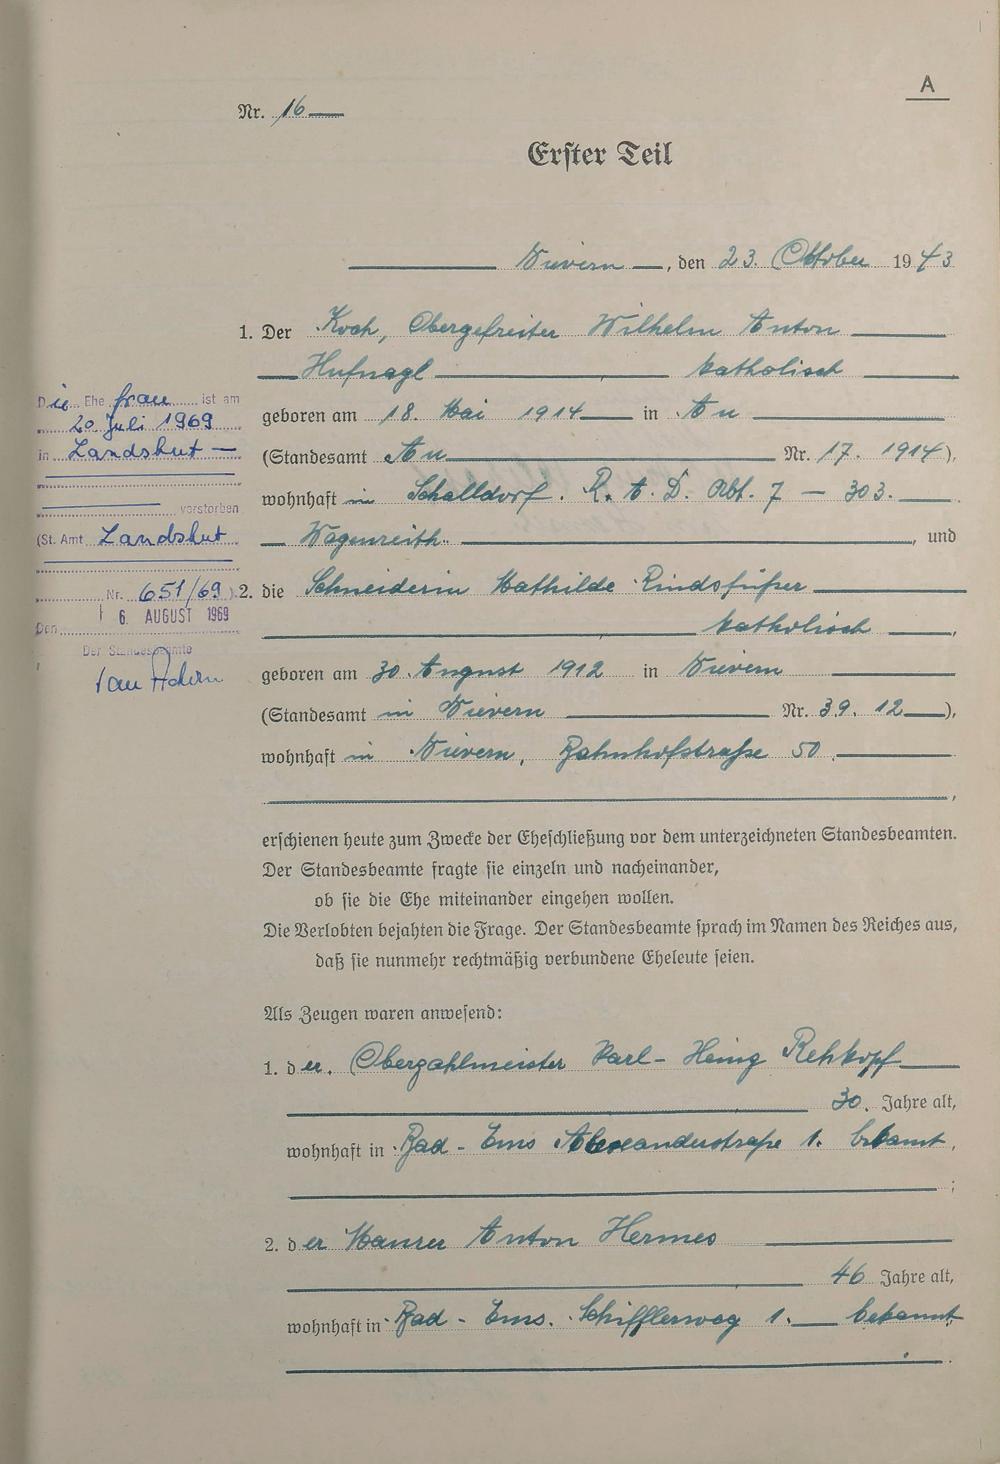 A
Nr. 16
Erster Teil
Nievern, den 23. Oktober 1943
1. Der Koch, Obergefreiter Wilhelm Anton
Hufnagl katholisch
geboren am 18. Mai 1914 in Au
(Standesamt Au Nr. 17. 1914),
wohnhaft in Schalldorf. R. A. D. Abt. 7 - 303.
Wagenreith. , und
2. die Schneiderin Mathilde Rindsfüßer
katholisch,
geboren am 30. August 1912 in Nievern
(Standesamt in Nievern Nr. 39. 12),
wohnhaft in Nievern, Bahnhofstraße 50.
erschienen heute zum Zwecke der Eheschließung vor dem unterzeichneten Standesbeamten.
Der Standesbeamte fragte sie einzeln und nacheinander,
ob sie die Ehe miteinander eingehen wollen.
Die Verlobten bejahten die Frage. Der Standesbeamte sprach im Namen des Reiches aus,
daß sie nunmehr rechtmäßig verbundene Eheleute seien.
Als Zeugen waren anwesend:
1. der. Oberzahlmeister Karl-Heinz Rehkopf
30. Jahre alt,
wohnhaft in Bad-Ems Alexanderstraße 1. bekannt,
;
2. der Maurer Anton Hermes
46 Jahre alt,
wohnhaft in Bad-Ems. Schifflerweg 1. bekannt.
Die Ehe frau ist am
20. Juli 1969
in Landshut
verstorben
(St. Amt Landshut
Nr. 651/69).
Den 16. AUGUST 1969
Der Standesbeamte